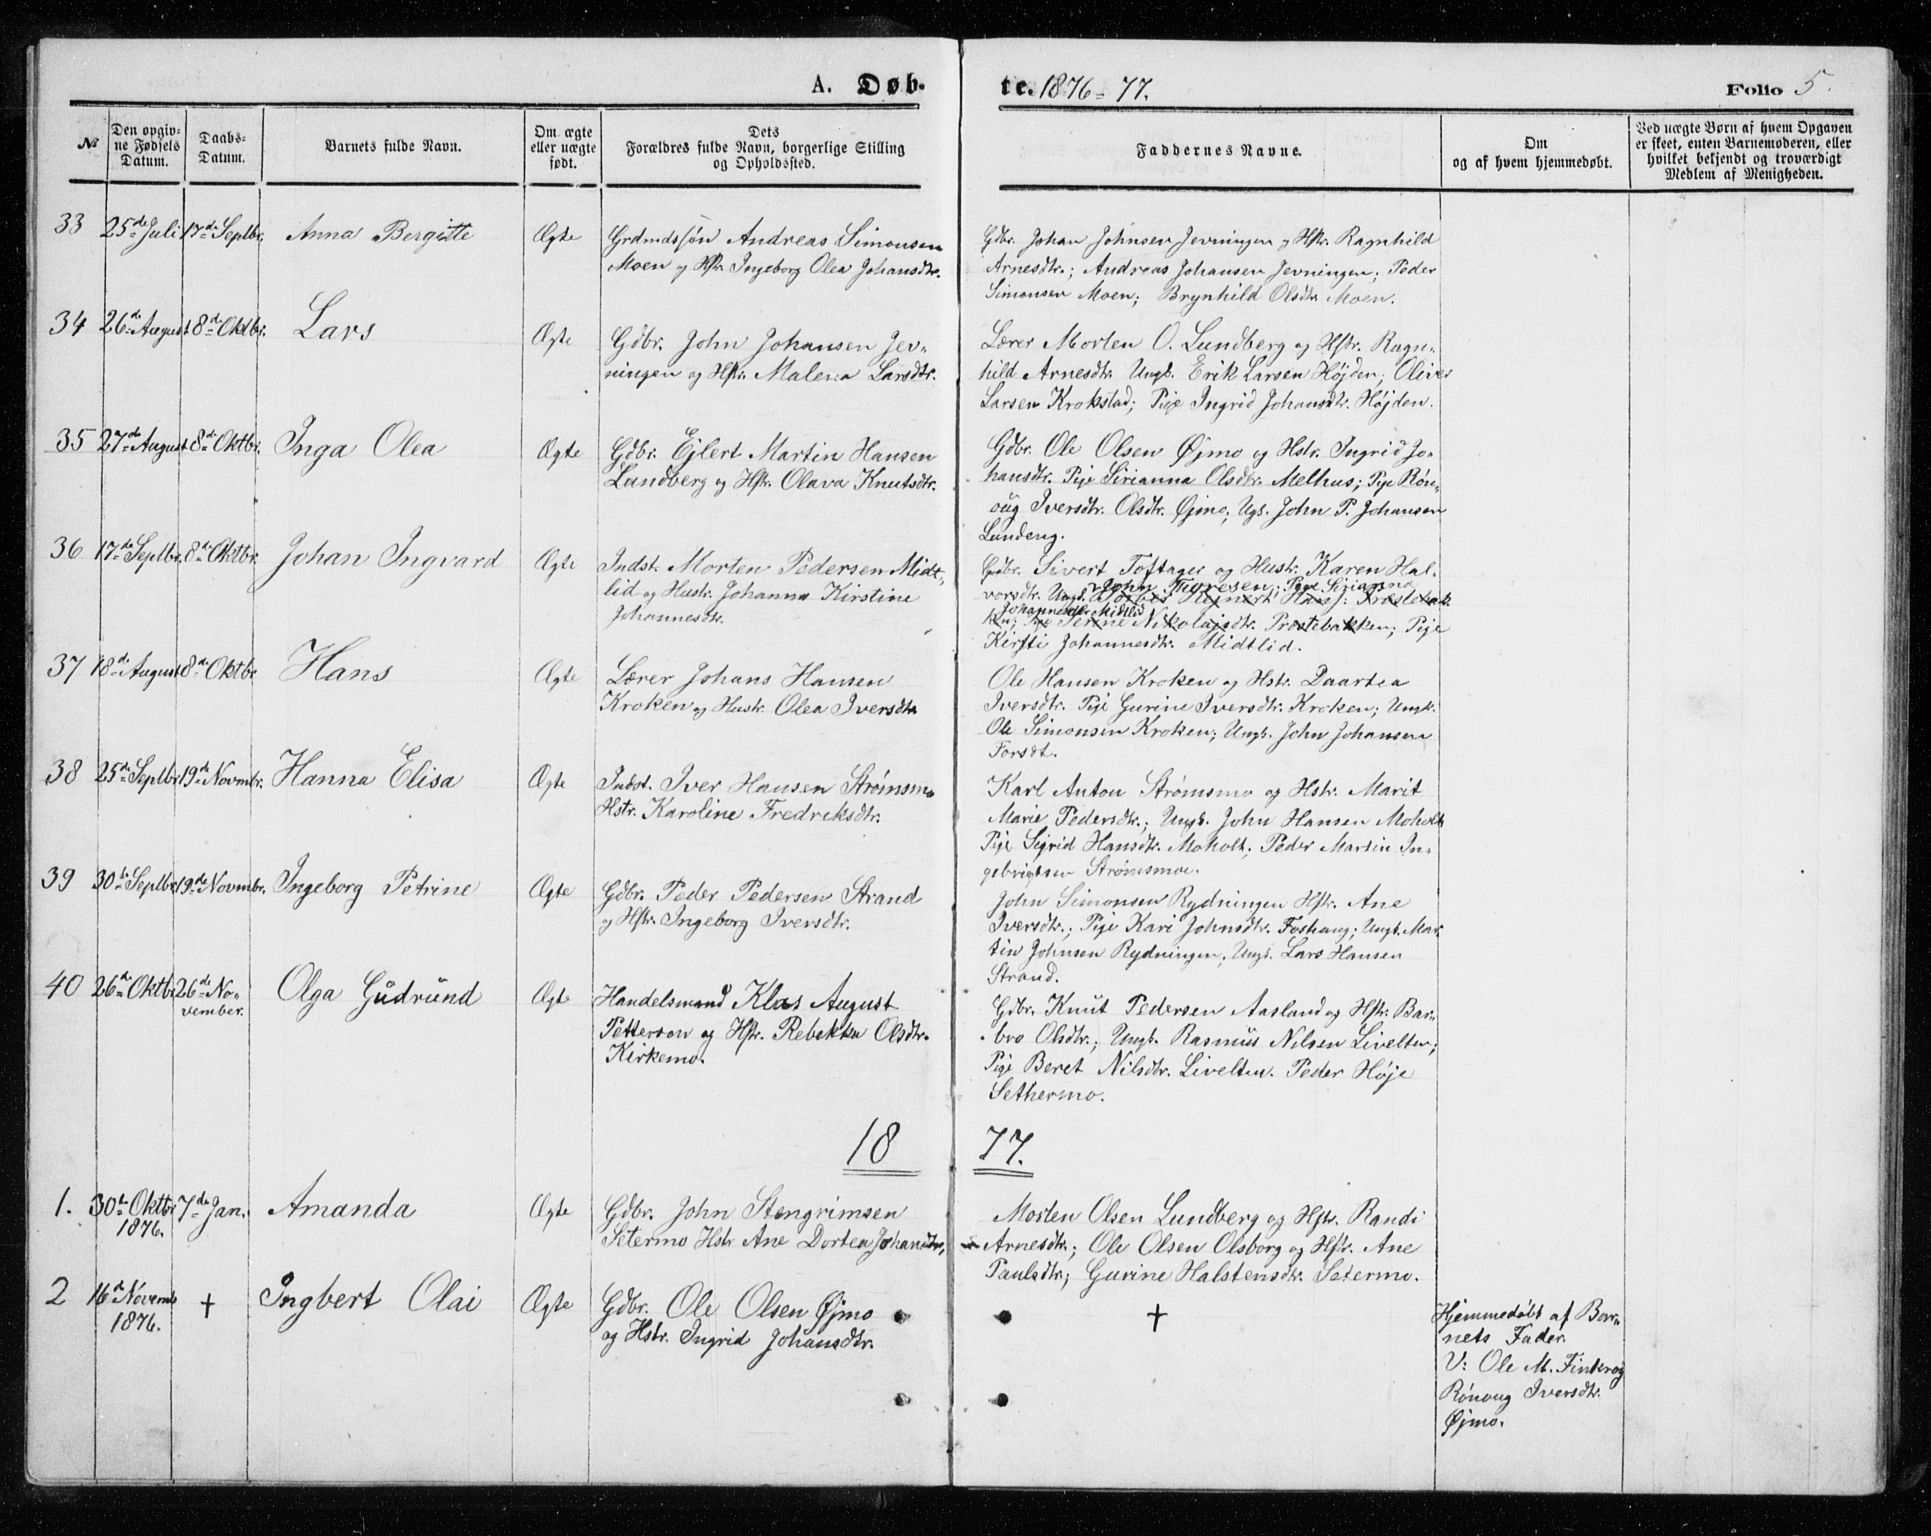 A. Døb-
te. 1876-77.
Folio 5.
№
Den opgiv-
ne Fødsels
Datum.
Daabs-
Datum.
Barnets fulde Navn.
Om ægte
eller uægte
født.
Dets
Forældres fulde Navn, borgerlige Stilling
og Opholdssted.
Faddernes Navne.
Om
og af hvem hjemmedøbt.
Ved uægte Børn af hvem Opgaven
er skeet, enten Barnemoderen, eller
hvilket bekjendt og troværdigt
Medlem af Menigheden.
33 25de Juli 17de Septbr. Anna Bergitte Ægte
Grdmdssøn Andreas Simonsen
Moen og Hstr. Ingeborg Olea Johansdtr.
Gdbr. Johan Johnsen Jevningen og Hstr. Ragnhild
Arnesdtr.; Andreas Johansen Jevningen; Peder
Simonsen Moen; Brynhild Olsdtr. Moen.
34 26de August 8de Oktbr. Lars Ægte
Gdbr. John Johansen Jev-
ningen og Hstr. Malena Larsdtr.
Lærer Morten O. Lundberg og Hstr. Ragn-
hild Arnesdtr. Ungk. Erik Larsen Højden; Oliver
Larsen Krokstad; Pige Ingrid Johansdtr. Højden.
35 27de August 8de Oktbr. Inga Olea Ægte
Gdbr. Ejlert Martin Hansen
Lundberg og Hstr. Olava Knutsdtr.
Gdbr. Ole Olsen Øjmo og Hstr. Ingrid Jo-
hansdtr. Pige Sirianna Olsdtr. Melhus; Pige Røn-
øug Iversdtr. Olsdtr. Øjmo; Ugk. John P. Johansen
Lunderg.
36 17de Septbr. 8de Oktbr. Johan Ingvard Ægte
Indst. Morten Pedersen Midt-
lid og Hustr. Johanna Kirstine
Johannesdtr.
Gdbr. Sivert Toftager og Hustr. Karen Hal-
vorsdtr. Ungk. John Pige Sirianna
Johannesdtr. Midtlid
Pige Serine Nikolajsdtr. Prøstebakken; Pige
Kirsti Johannesdtr. Midtlid.
37 18de August 8de Oktbr. Hans Ægte
Lærer Johans Hansen
Kroken og Hustr. Olea Iversdtr.
Ole Hansen Kroken og Hstr. Daartea
Iversdtr. Pige Gurine Iversdtr. Kroken; Ungk.
Ole Simonsen Kroken; Ungk. John Johansen
Forsdt.
38 25de Septbr. 19de Novmbr. Hanna Elisa Ægte
Indst. Iver Hansen Strømsmo
Hstr. Karoline Fredriksdtr.
Karl Anton Strømsmo og Hstr. Marit
Marie Pedersdtr.; Ungk. John Hansen Moholt
Pige Sigrid Hansdtr. Moholt; Peder Martin In-
gebrigtsen Strømsmoe.
39 30te Septbr. 19de Novmbr. Ingeborg Petrine Ægte
Gdbr. Peder Pedersen Strand
og Hstr. Ingeborg Iversdtr.
John Simonsen Rydningen Hstr. Ane
Iversdtr.; Pige Kari Johnsdtr. Foshaug; Ungk. Mar-
tin Johnsen Rydningen; Ungk. Lars Hansen
Strand.
40 26de Oktbr. 26de No-
vember. Olga Gudrund Ægte
Handelsmand Klas August
Petterson og Hstr. Rebekka Olsdtr.
Kirkemo.
Gdbr. Knut Pedersen Aasland og Hstr. Bar-
bro Olsdtr.; Ungk. Rasmus Nilsen Livelten;
Pige Beret Nilsdtr. Livelten. Peder Høje
Sethermo.
18 77.
1. 30te Oktbr. 7de Jan. Amanda Ægte
1876.
Gdbr. John Stengrimsen
Setermo Hstr Ane Dortea Johansdtr,
Morten Olsen Lundberg og Hstr. Randi
Arnesdtr.; Ole Olsen Olsborg og Hstr. Ane
Paulsdtr; Gurine Halstensdtr. Setermo.
2 16de Novemb. + Ingbert Olai Ægte
1876.
Gdbr. Ole Olsen Øjmo
og Hstr. Ingrid Johansdtr.
+
Hjemmedøbt af Bar-
nets Fader.
V: Ole M. Finkrog
Rønoug Iversdtr.
Øjmo.